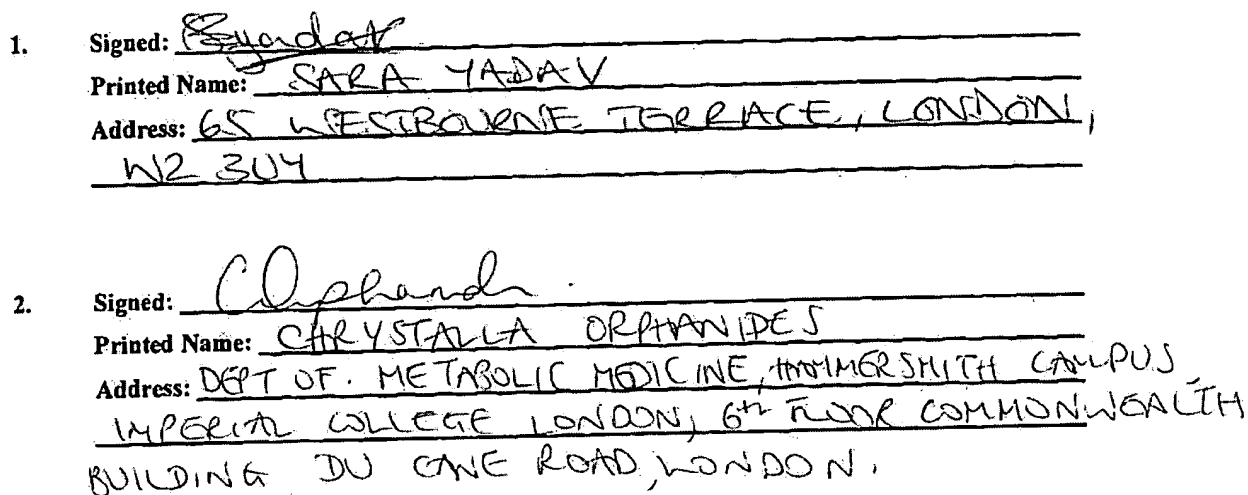 1. Signed: Syadav
Printed Name: SARA YADAV
Address: 65 WESTBOURNE TERRACE, LONDON,
W2 3UY
2. Signed:
Printed Name: CHRYSTALLA ORPHANIDES
Address: DEPT OF. METABOLIC MEDICINE, HAMMERSMITH CAMPUS,
IMPERIAL COLLEGE LONDON, 6th FLOOR COMMONWEALTH
BUILDING DU CANE ROAD, LONDON.